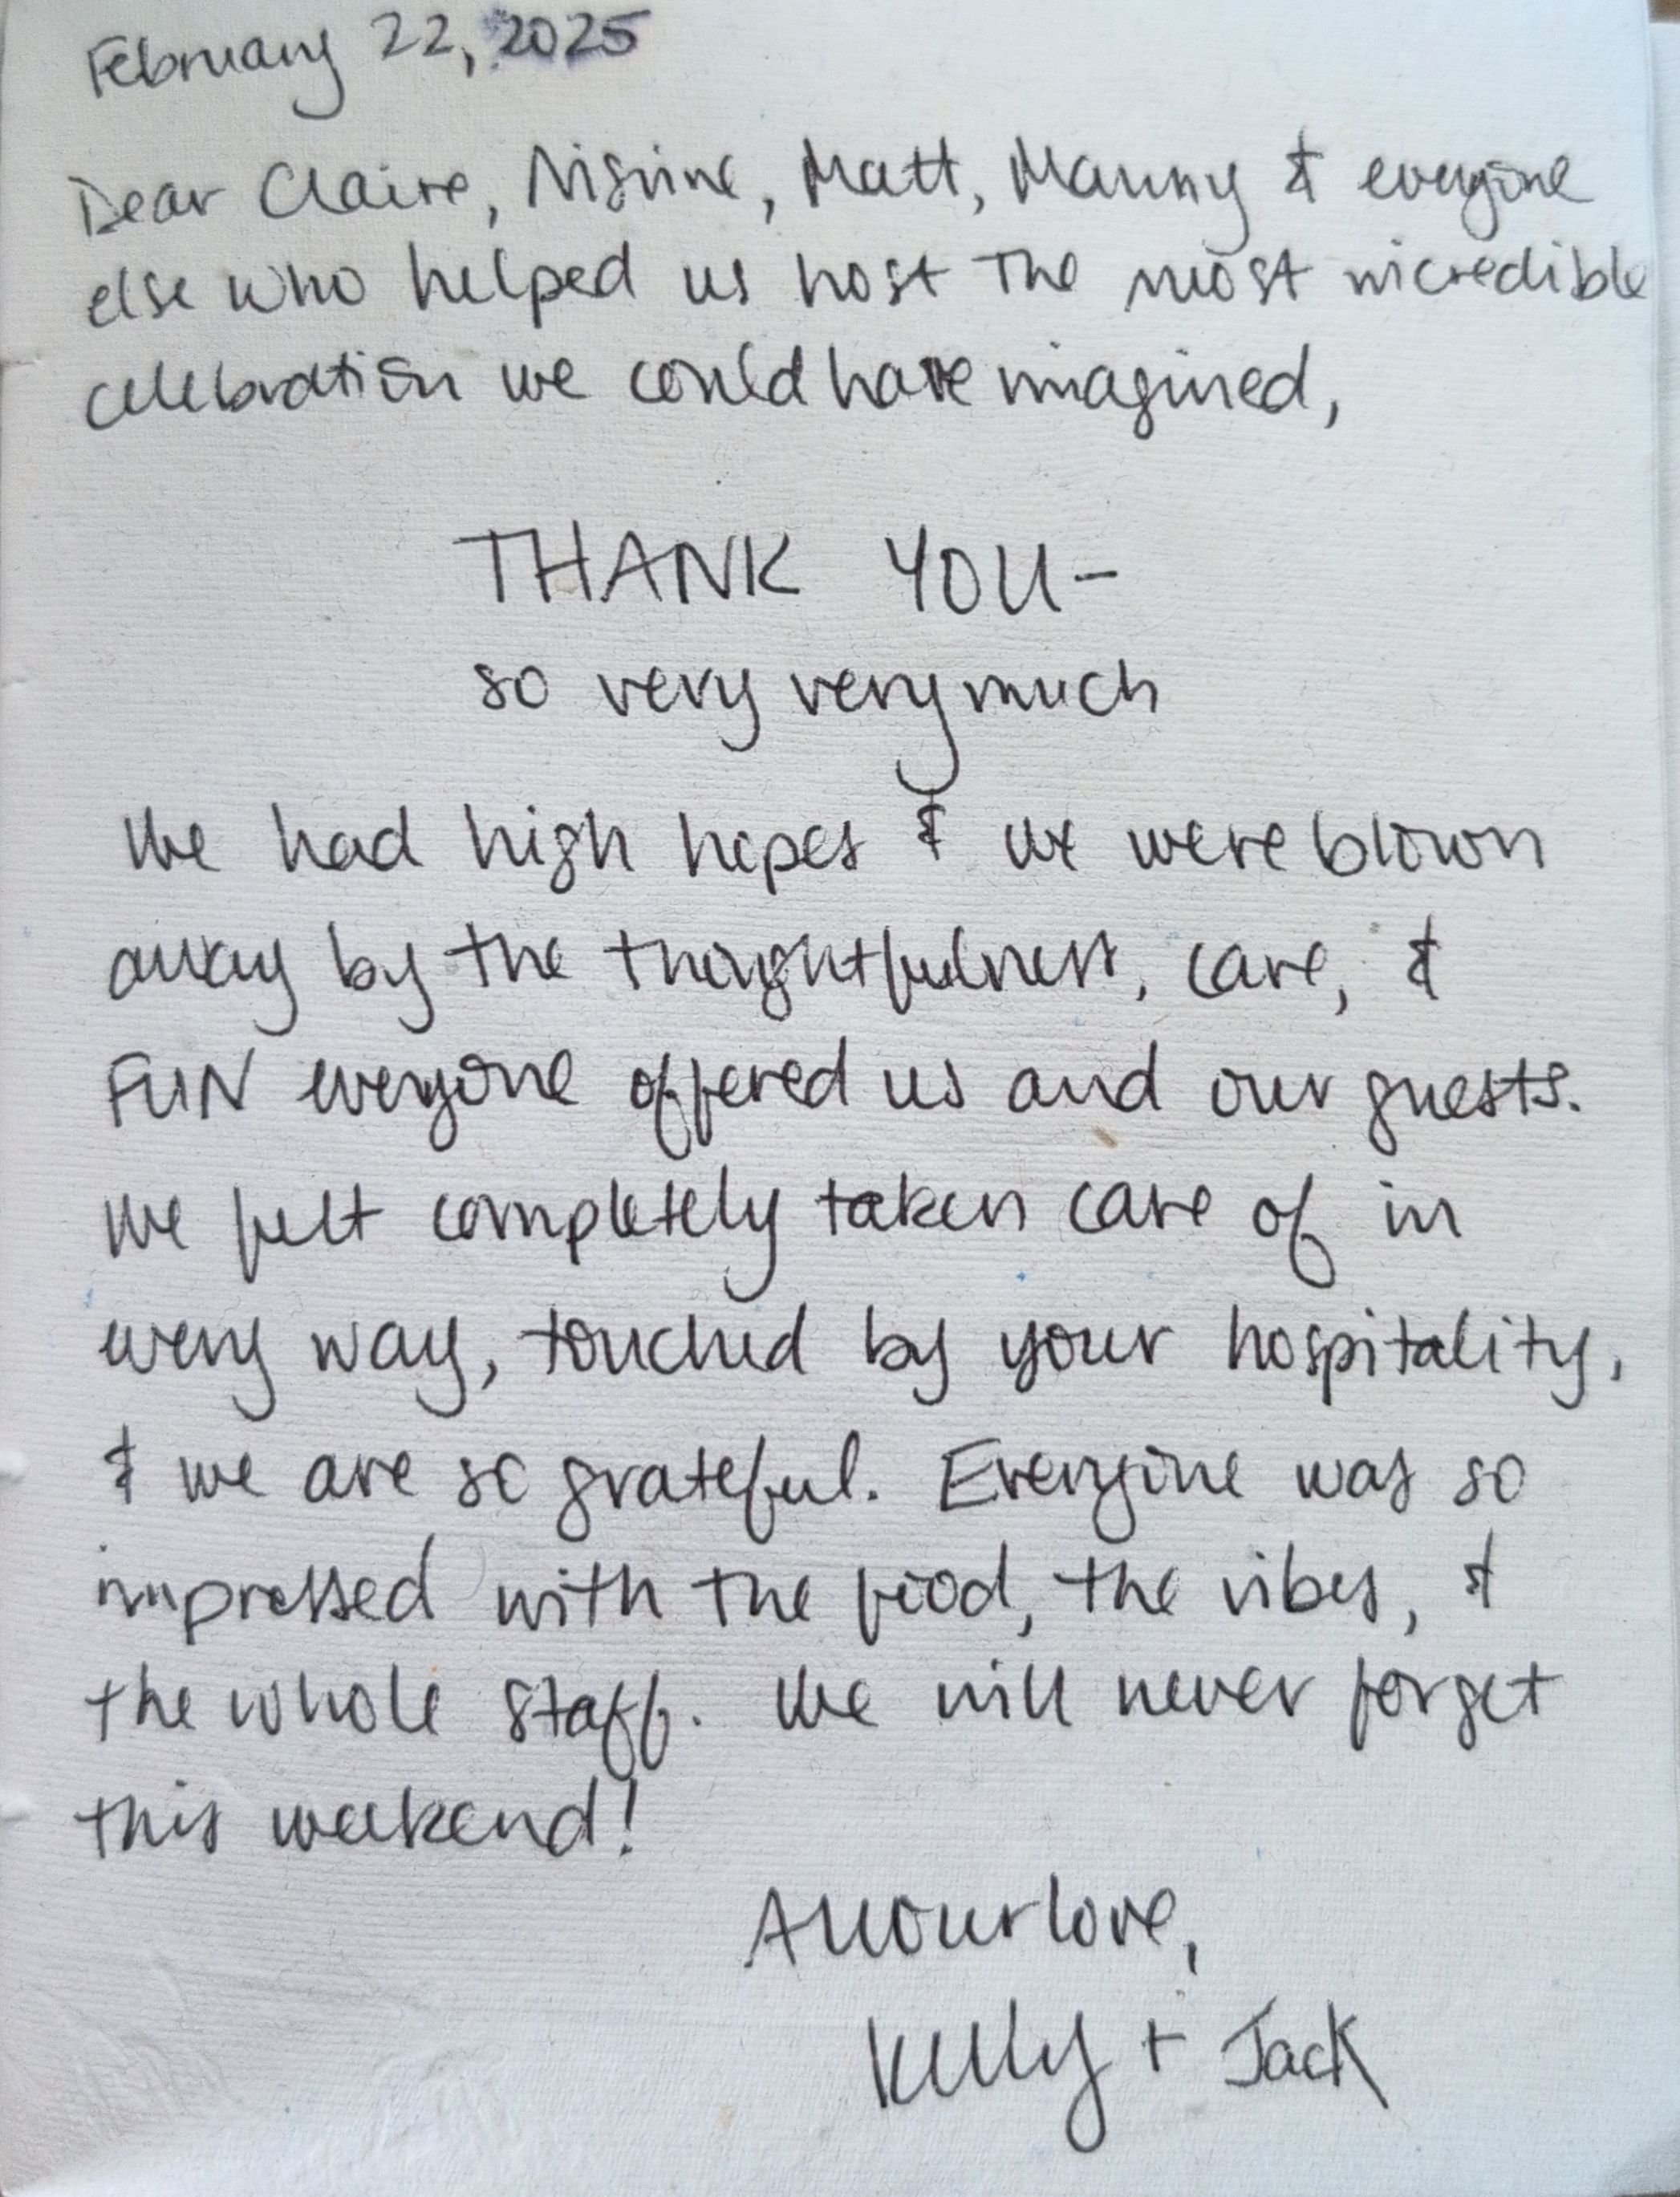 February 22, 2025
Dear Claire, Nisrine, Matt, Manny & everyone
else who helped us host the most incredible
celebration we could have imagined,
THANK YOU-
so very very much
We had high hopes & we were blown
away by the thoughtfulness, care, &
FUN everyone offered us and our guests.
We felt completely taken care of in
every way, touched by your hospitality,
& we are so grateful. Everyone was so
impressed with the food, the vibes, &
the whole staff. We will never forget
this weekend!
All our love,
Kelly + Jack